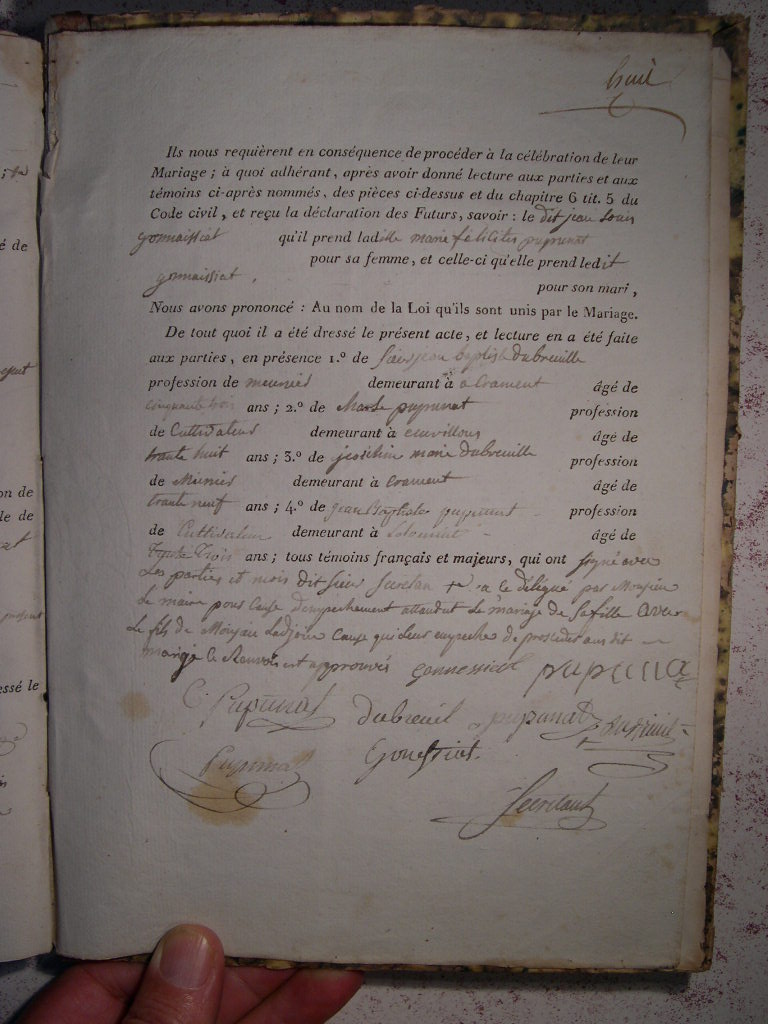 huit
Ils nous requièrent en conséquence de procéder à la célébration de leur
Mariage ; à quoi adhérant, après avoir donné lecture aux parties et aux
témoins ci-après nommés, des pièces ci-dessus et du chapitre 6 tit. 5 du
Code civil, et reçu la déclaration des Futurs, savoir : le dit jean Louis
gonnaissiat qu'il prend ladille marie félicités pupunat
pour sa femme, et celle-ci qu'elle prend ledit
gonnaissiat . pour son mari,
Nous avons prononcé : Au nom de la Loi qu'ils sont unis par le Mariage.
De tout quoi il a été dressé le présent acte, et lecture en a été faite
aux parties, en présence 1.º de jean baptiste dubreuille
profession de meuniés demeurant à a Crament âgé de
cinquante trois ans ; 2.º de pupunat profession
de Cultivateur demeurant à âgé de
trante huit ans ; 3.º de marie dubreuille profession
de Muniés demeurant à Crament âgé de
trante neuf ans ; 4.º de jean pupunat profession
de Cultivateur demeurant à âgé de
Trois ans ; tous témoins français et majeurs, qui ont signé avec
Les parties et mois dit sieur Secretan a ce déligué par Monsieur
Le maire pour Cause dempechement attandut Le mariage de sa fille avec
Le fils de Monsieu Ladjoin Cause qui Leur empeche de proceder aus dit
mariage Ce Renvois est approuvés gonnessiat pupuna
C Pupunat dubreuil pupunat dubreuil
Pupunat Gonessiat.
Secretant